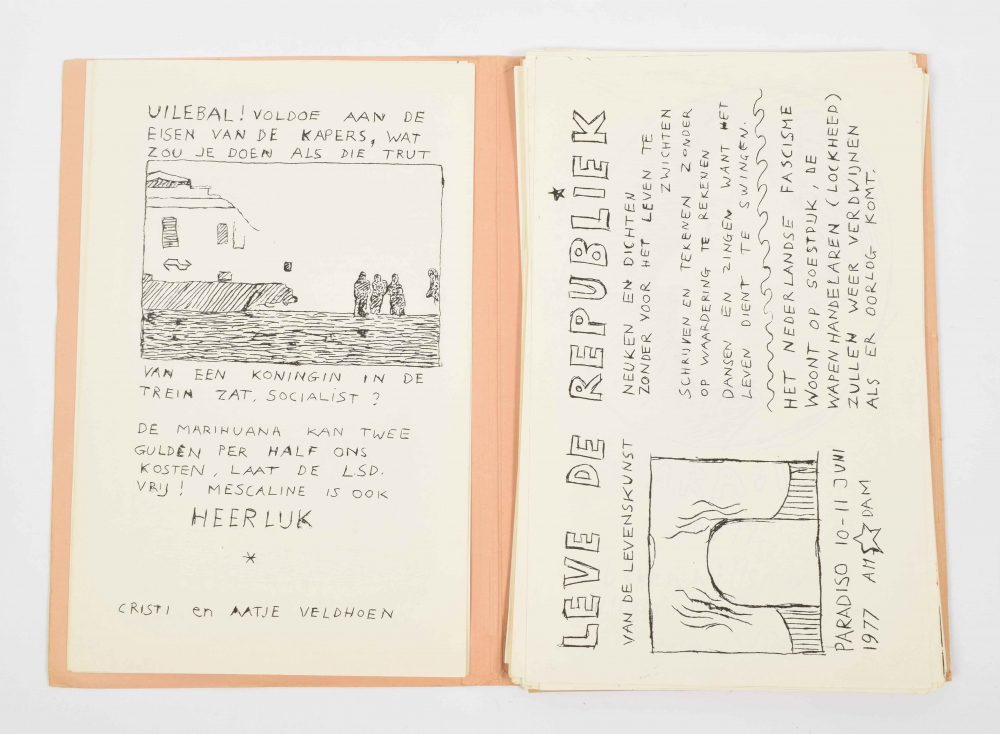 UILEBAL! VOLDOE AAN DE
EISEN VAN DE KAPERS, WAT
ZOU JE DOEN ALS DIE TRUT
VAN EEN KONINGIN IN DE
TREIN ZAT, SOCIALIST?
DE MARIHUANA KAN TWEE
GULDEN PER HALF ONS
KOSTEN, LAAT DE LSD.
VRIJ! MESCALINE IS OOK
HEERLIJK
CRISTI en AATJE VELDHOEN
LEVE DE REPUBLIEK
VAN DE LEVENSKUNST
NEUKEN EN DICHTEN
ZONDER VOOR HET LEVEN TE
ZWICHTEN
SCHRIJVEN EN TEKENEN ZONDER
OP WAARDERING TE REKENEN
DANSEN EN ZINGEN WANT HET
LEVEN DIENT TE SWINGEN.
HET NEDERLANDSE FASCISME
WOONT OP SOESTDIJK, DE
WAPENHANDELAREN (LOCKHEED)
ZULLEN WEER VERDWIJNEN
ALS ER OORLOG KOMT.
PARADISO 10-11 JUNI
1977 AM☆DAM